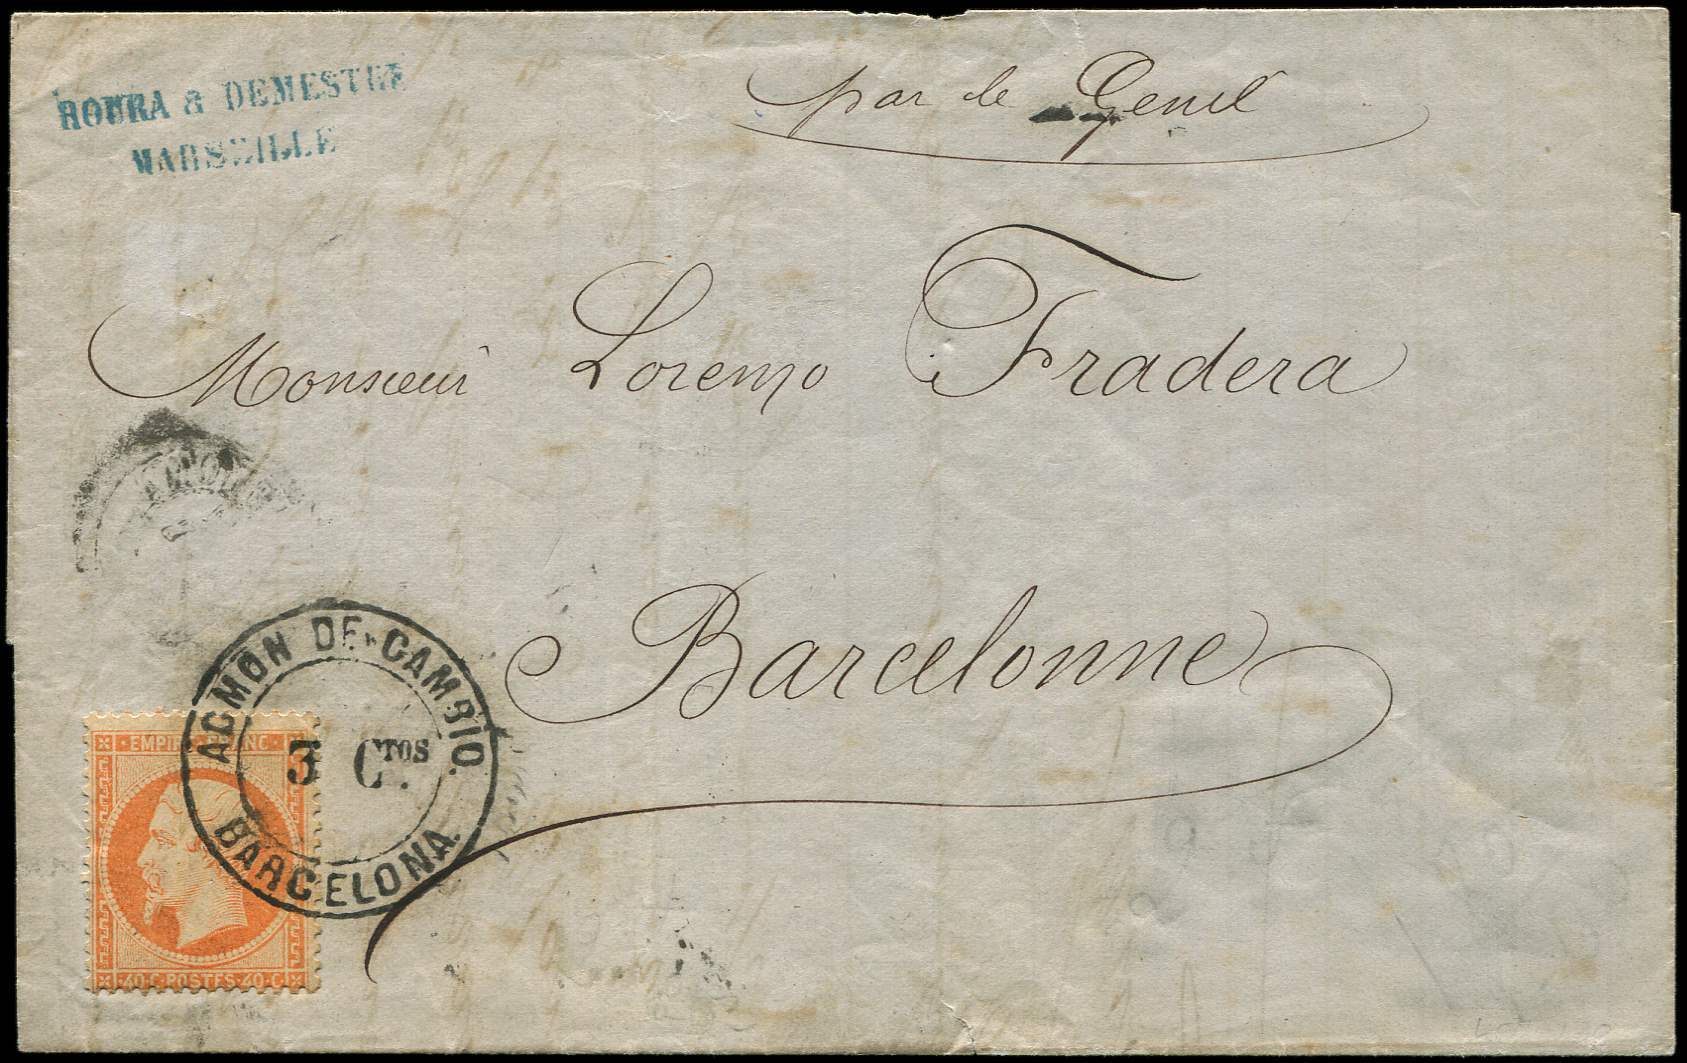 par le Genil
ROURA & DEMESTRE
MARSEILLE
Monsieur Lorenzo Fradera
Barcelonne
ADMON DE CAMBIO.
3 CTOS.
BARCELONA.
EMPIRE FRANC
40 C POSTES 40 C